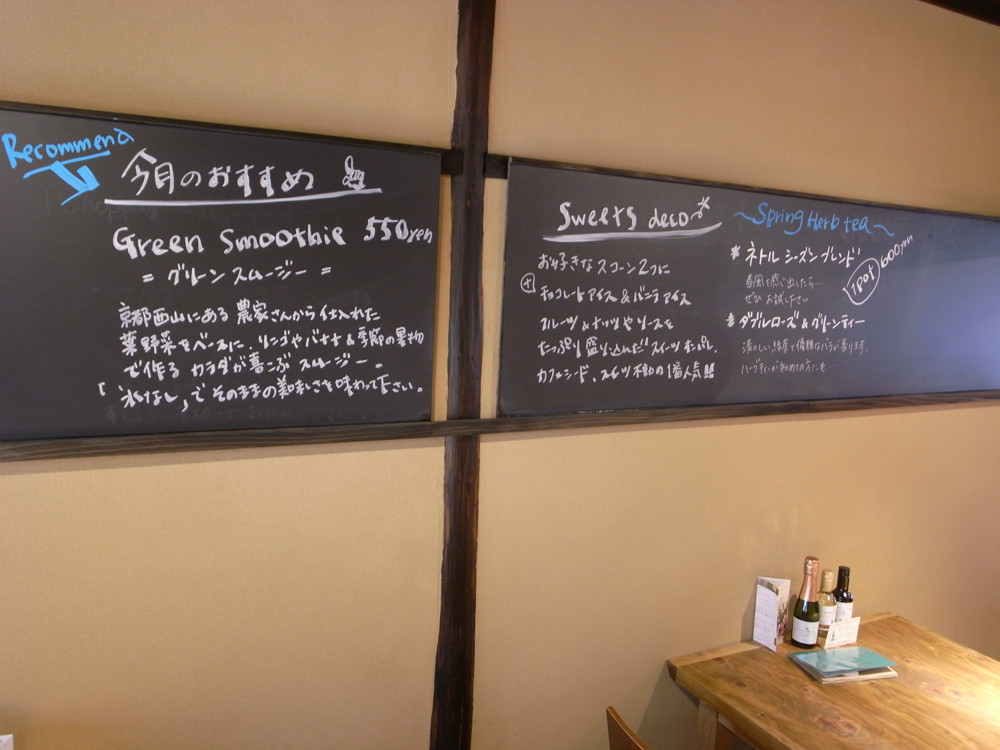 Recommend
今月のおすすめ
Green Smoothie 550yen
= グリーンスムージー =
京都西山にある農家さんから仕入れた
葉野菜をベースに、リンゴやバナナ&季節の果物
で作る カラダが喜ぶ スムージー。
「氷なし」でそのままの美味しさを味わって下さい。
Sweets deco
お好きなスコーン2つに
+ チョコレートアイス&バニラアイス
フルーツ&ナッツやソースを
たっぷり盛り込んだ スイーツ
カフェシード、スイーツ不動の1番人気
~Spring Herb tea~
* ネトル シーズンブレンド
1pot 600yen
春風を感じ出したら…
ぜひ お試し下さい
* ダブルローズ&グリーンティー
清々しい緑茶と優雅なバラが香ります。
ハーブティーが初めての方にも…